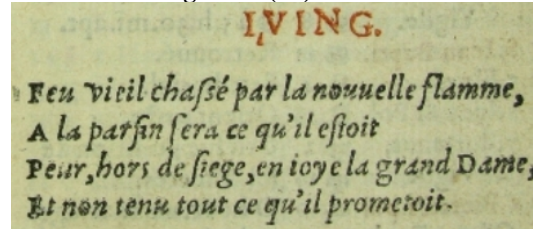 IVING.
Feu vieil chaſſé par la nouuelle flamme,
A la parfin ſera ce qu'il eſtoit
Peur, hors de ſiege, en ioye la grand Dame,
Et non tenu tout ce qu'il prometoit.